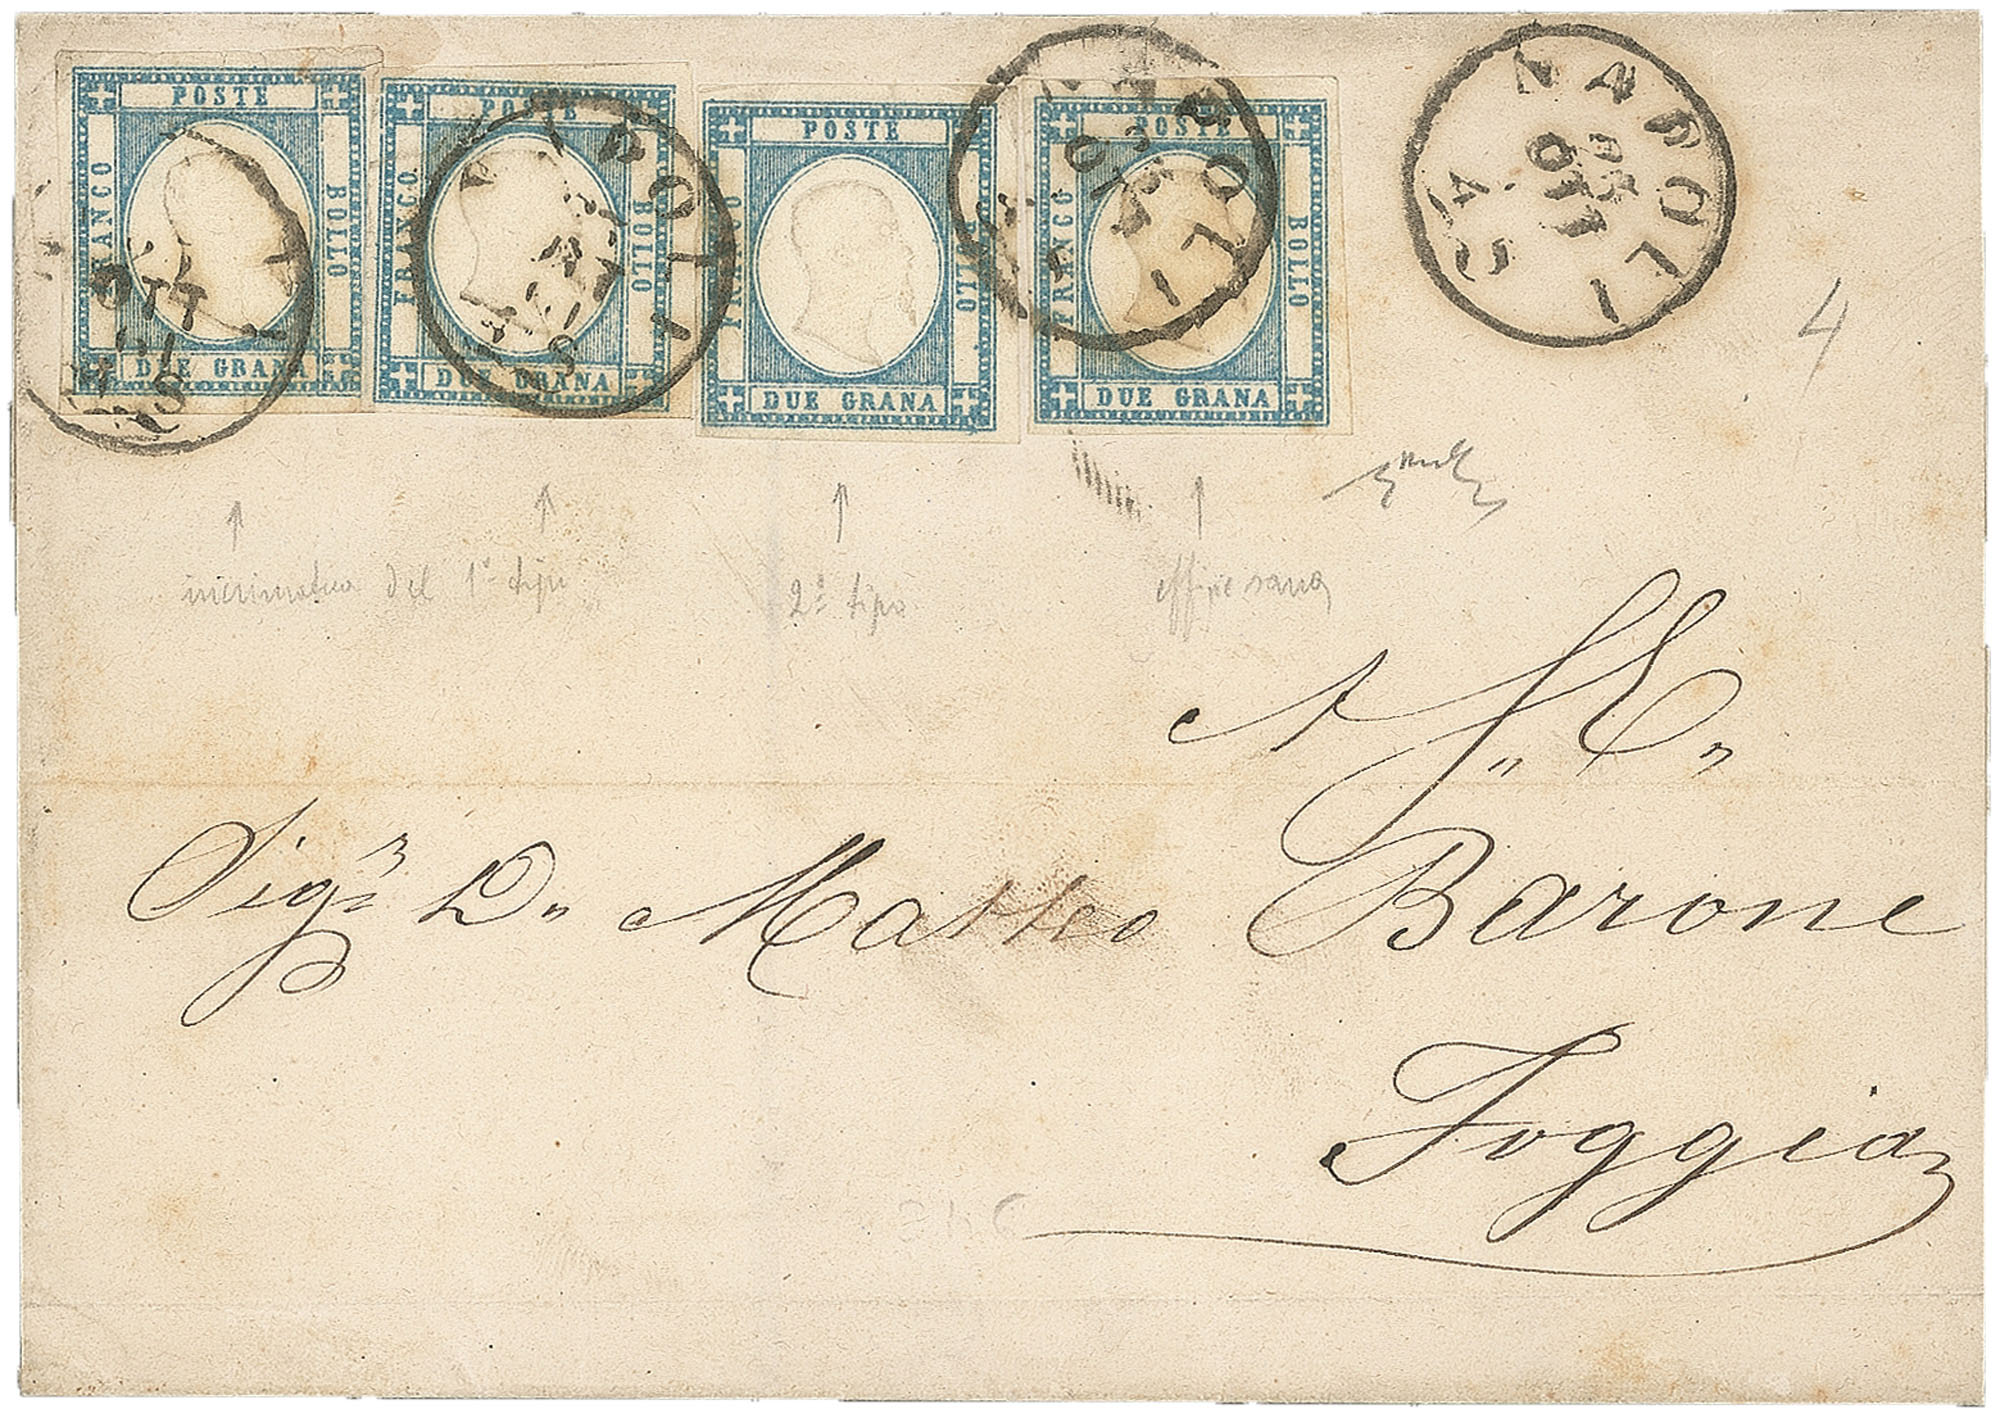 POSTE
FRANCO
BOLLO
DUE GRANA
POSTE
FRANCO
BOLLO
DUE GRANA
POSTE
FRANCO
BOLLO
DUE GRANA
POSTE
FRANCO
BOLLO
DUE GRANA
OTT
NAPOLI
NAPOLI
NAPOLI
OTT
4
del 1° tipo
2° tipo
A S. E.
Sigr D. Matteo Barone
Foggia